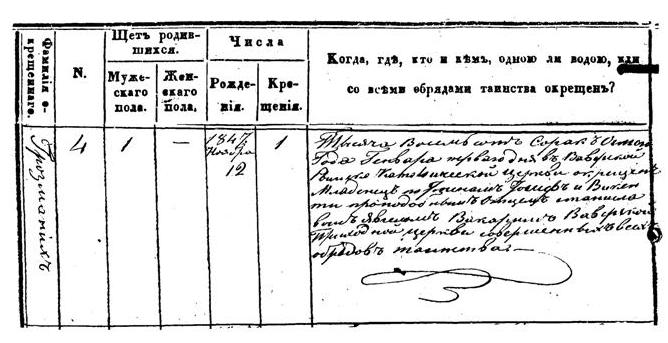 Фамилiя о-
крещеннаго.
N.
Щетъ родив-
шихся.
Мужес-
каго
пола.
Женс-
каго
пола.
Числа
Рожде-
нiя.
Кре-
щенiя.
Когда, гдѣ, кто и кѣмъ, одною ли водою, или
со всѣми обрядами таинства окрещенъ?
4
1
—
1847
Ноября
12
1
Тысяча Восемьсотъ Сорокъ
Года Генваря перваго дня въ Ваверской
Римско Католической Церкви окрещенъ
Младенецъ по Iосифъ и Викен
ти преподобнымъ Отцемъ Станисла
вомъ Викарiемъ Ваверской
Приходной церкви совершенныхъ всехъ
обрядовъ таинства.